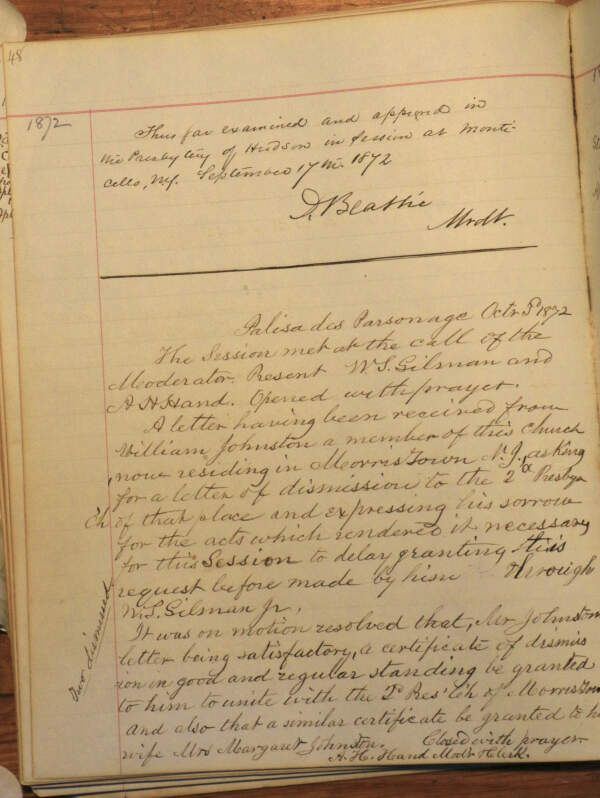 48
1872
Thus far examined and appproved in
the Presbytery of Hudson in Session at Monti-
cello, N.Y. September 17th. 1872
D. Beattie
Modt.
Palisades Parsonage Octr 5th 1872
The Session met at the call of the
Moderator. Present W. S. Gilman and
A H Hand. Opened with prayer.
A letter having been received from
William Johnston a member of this church
now residing in Morris Town N. J., asking
for a letter of dismission to the 2d Presbyn
Ch of that place and expressing his sorrow
for the acts which rendered it necessary
for this Session to delay granting this
request before made by him through
W. S. Gilman Jr.
Two dismissed
It was on motion resolved that, Mr Johnston
letter being satisfactory, a certificate of dismis
ion in good and regular standing be granted
to him to unite with the 2d Pres' Ch of Morris Town
and also that a similar certificate be granted to his
wife Mrs Margaret Johnston. Closed with prayer.
A. H. Hand Modr & Clerk.